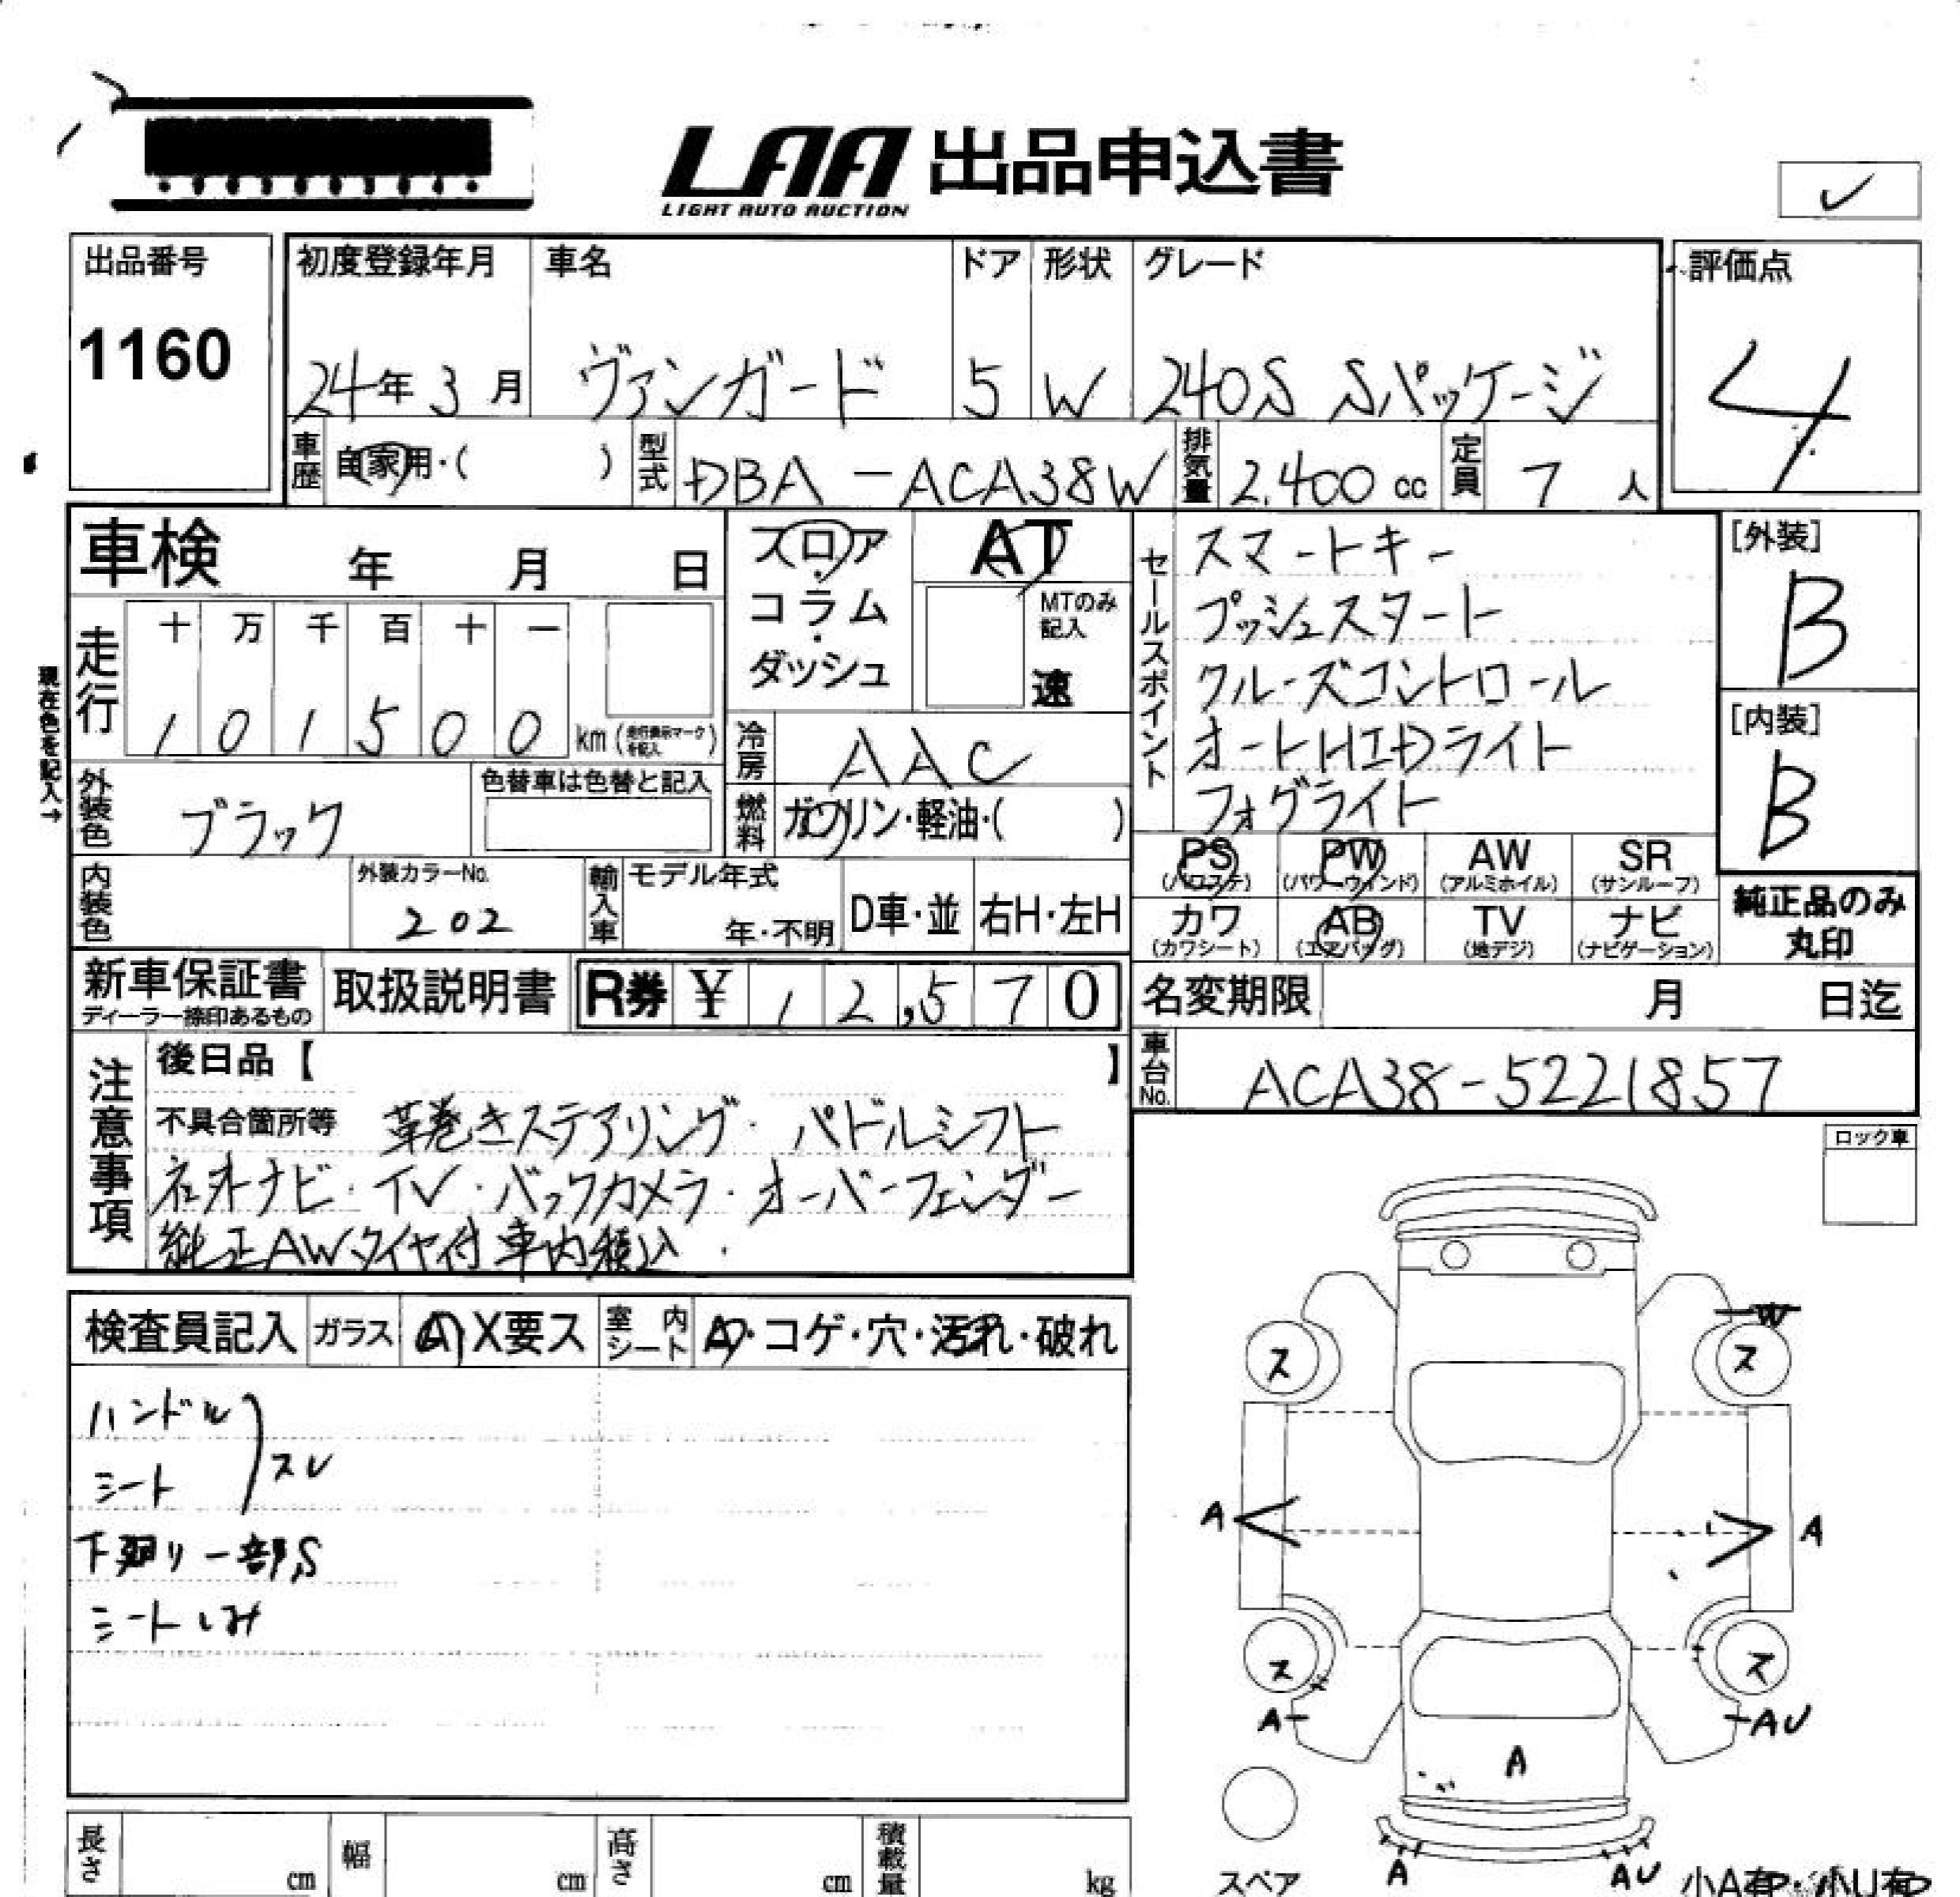 LAA 出品申込書
LIGHT AUTO AUCTION
出品番号
1160
初度登録年月 車名 ドア 形状 グレード
24年3月 ヴァンガード 5 W 240S Sパッケージ
評価点
4
車歴 自家用・( ) 型式 DBA-ACA38W 排気量 2.400 cc 定員 7 人
車検 年 月 日
フロア・コラム・ダッシュ
AT
MTのみ記入
速
走行 十 万 千 百 十 一
1 0 1 5 0 0 km (走行表示マークを記入)
現在色を記入→
冷房 AAC
燃料 ガソリン・軽油・( )
外装色 ブラック
色替車は色替と記入
内装色
外装カラーNo.
202
輸入車 モデル年式
年・不明
D車・並 右H・左H
セールスポイント
スマートキー
プッシュスタート
クルーズコントロール
オートHIDライト
フォグライト
[外装]
B
[内装]
B
PS (パワステ) PW (パワーウインド) AW (アルミホイル) SR (サンルーフ)
カワ (カワシート) AB (エアバッグ) TV (地デジ) ナビ (ナビゲーション)
純正品のみ
丸印
新車保証書
ディーラー捺印あるもの
取扱説明書 R券 ¥ 12,570
名変期限 月 日迄
車台No. ACA38-5221857
注意事項
後日品【 】
不具合箇所等 革巻きステアリング・パドルシフト
社外ナビ・TV・バックカメラ・オーバーフェンダー
純正AWタイヤ付車内積込.
ロック車
検査員記入 ガラス A X要ス 室内シート A・コゲ・穴・汚れ・破れ
ハンドル
シート
スレ
下廻り一部S
シートしみ
W
ス ス
A A
ス ス
A AU
A
A AU
スペア
小A有・小U有
長さ cm 幅 cm 高さ cm 積載量 kg